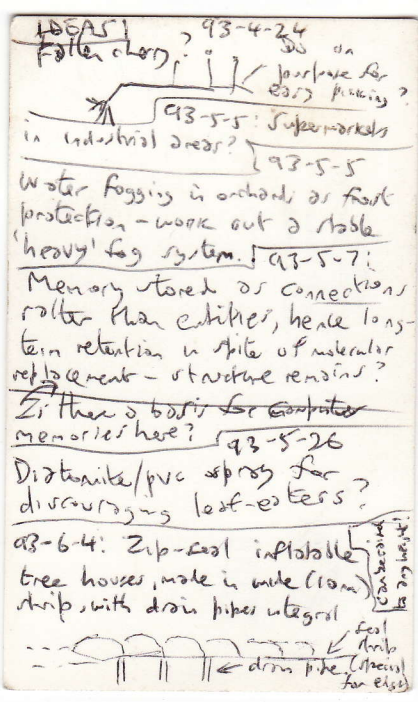 IDEAS! 93-4-24
Fallen cherry? Do on
purpose for
easy picking?
93-5-5: Supermarkets
in industrial areas? 93-5-5
Water fogging in orchards as frost
protection - work out a stable
'heavy' fog system. 93-5-7:
Memory stored as connections
rather than entities, hence long-
term retention in spite of molecular
replacement - structure remains?
Is there a basis for computer
memories here? 93-5-26
Diatomite/pvc spray for
discouraging leaf-eaters?
93-6-4: Zip-seal inflatable
tree houses, made in wide (10m)
strip, with drain pipes integral
can be raised
to any height!
seal
strip
drain pipe (special
for ends)